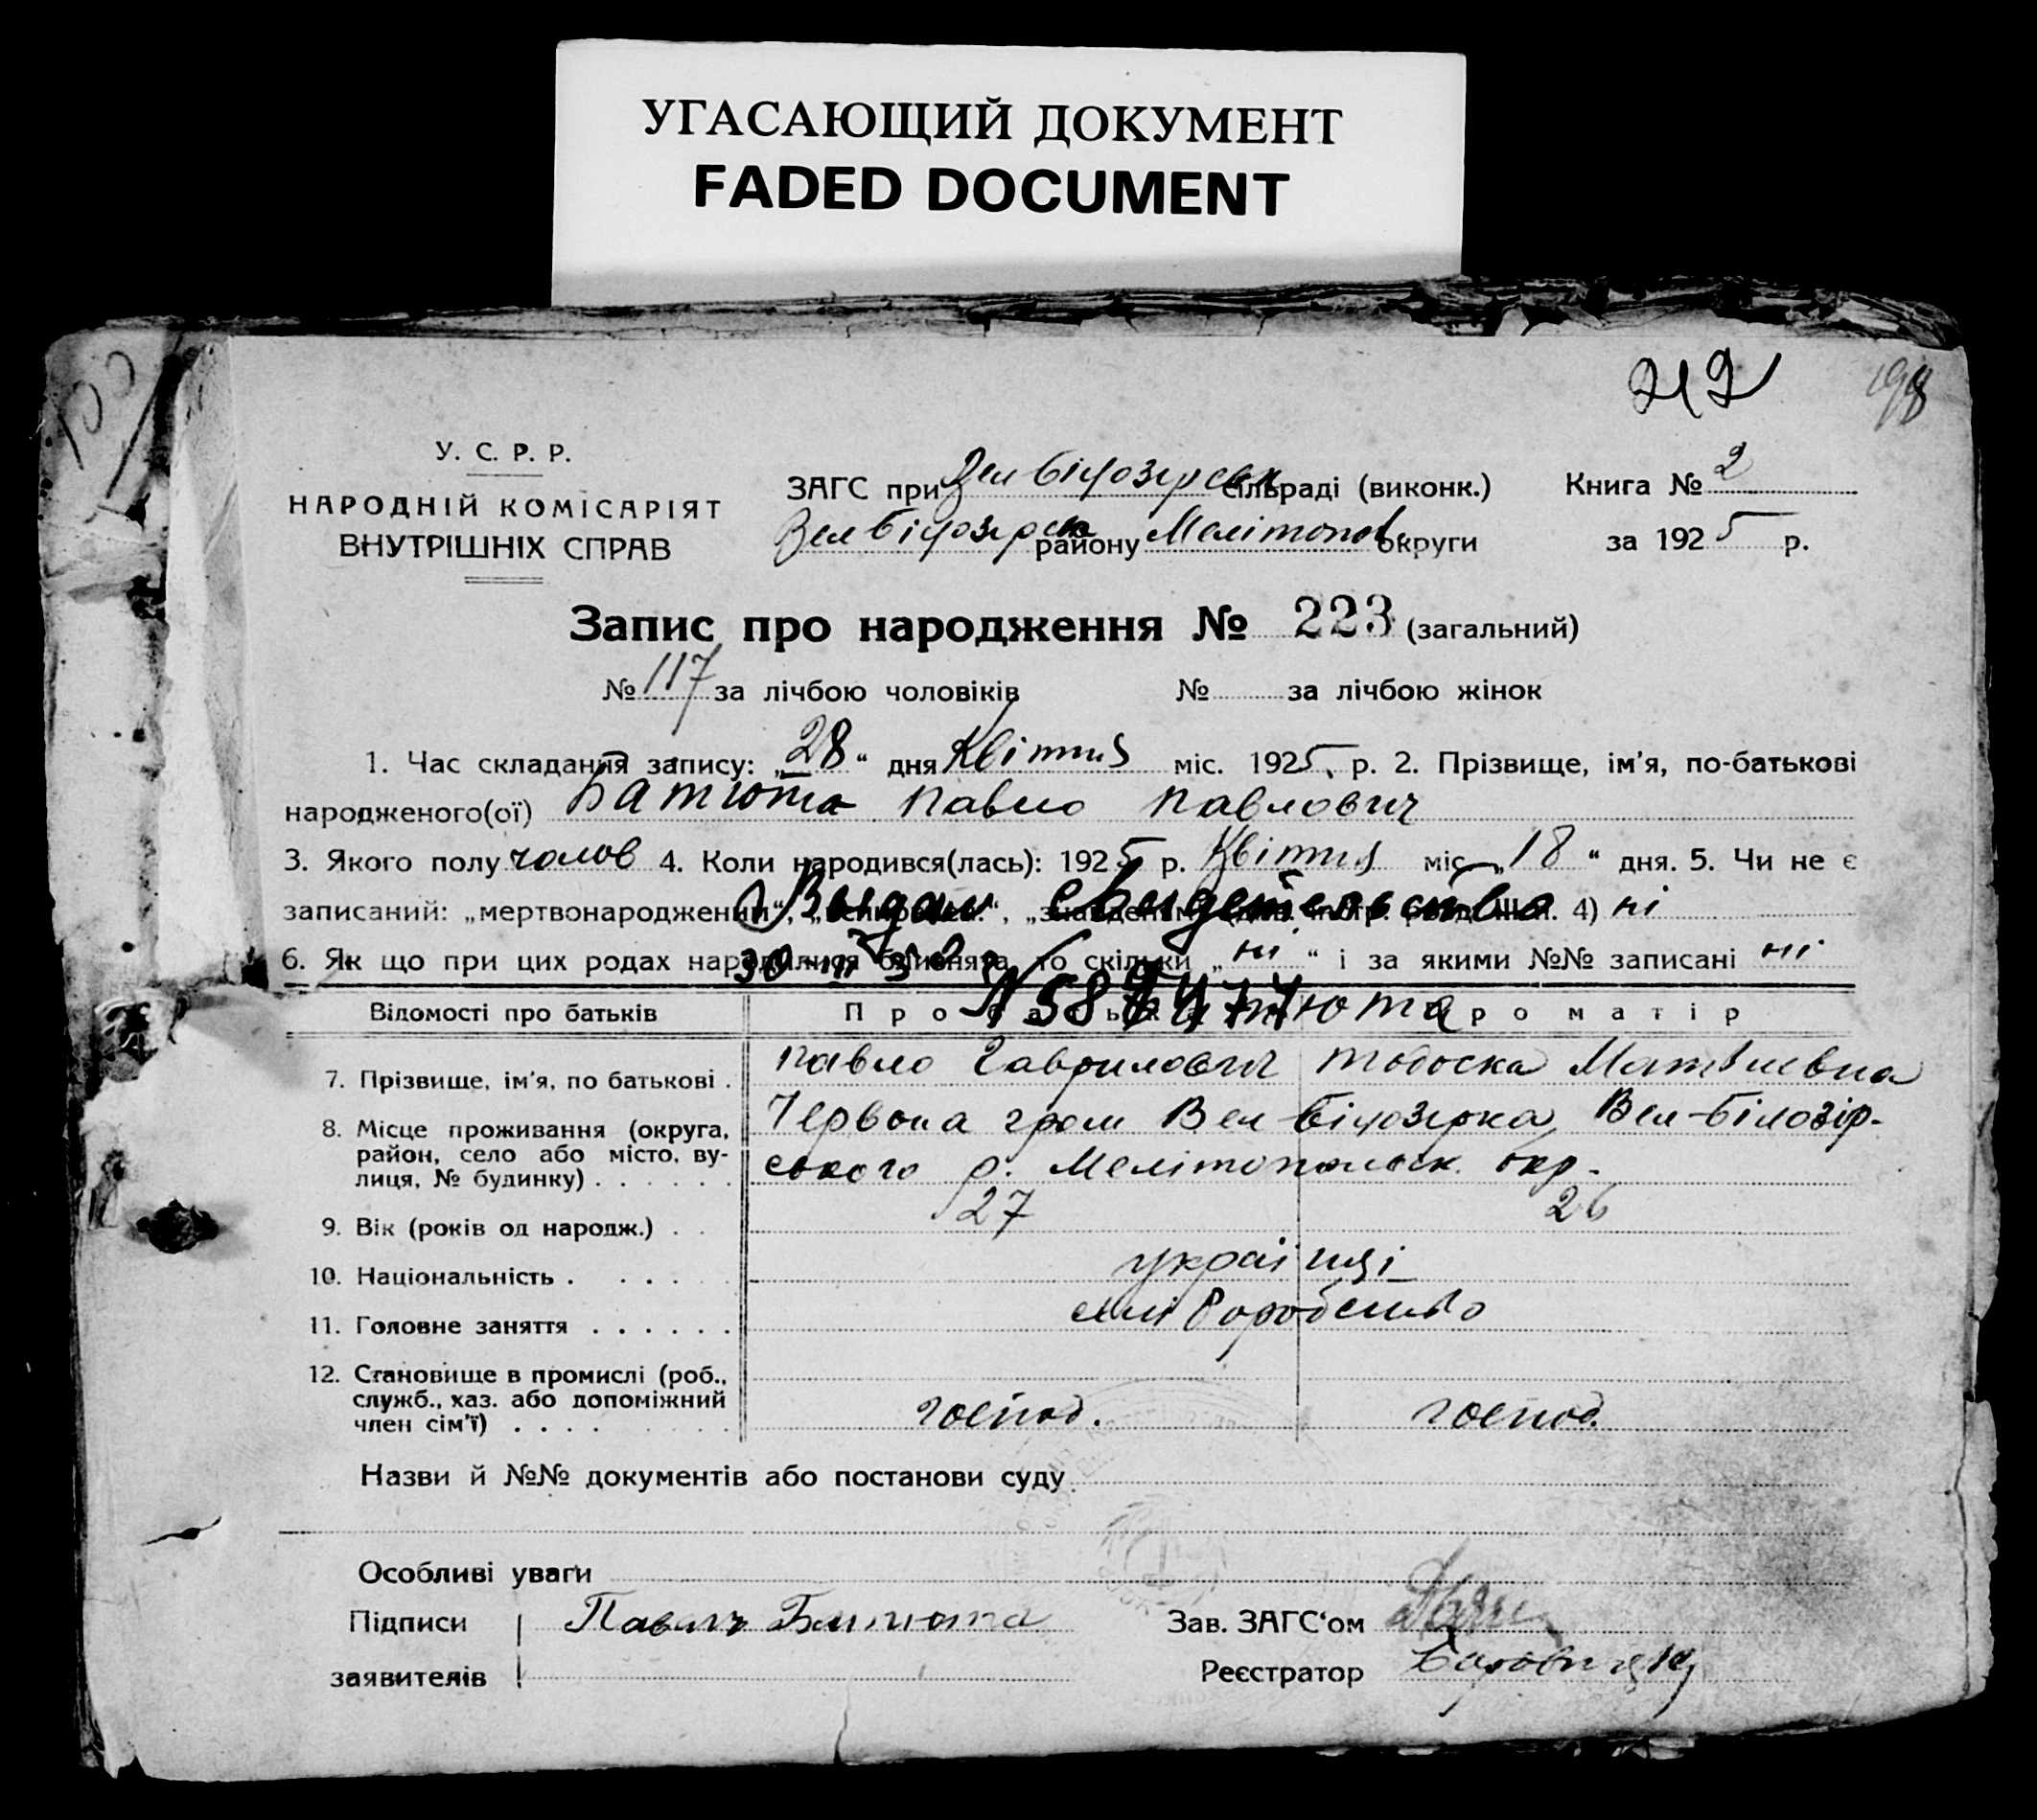 УГАСАЮЩИЙ ДОКУМЕНТ
FADED DOCUMENT
212
198
У. С. Р. Р.
НАРОДНІЙ КОМІСАРІЯТ
ВНУТРІШНІХ СПРАВ
ЗАГС при Вел Білозірськ сільраді (виконк.)
Книга № 2
Вел Білозірськ району Мелітопол округи
за 1925 р.
Запис про народження № 223 (загальний)
№ 117 за лічбою чоловіків № за лічбою жінок
1. Час складання запису: „28“ дня Квітня міс. 1925 р. 2. Прізвище, ім'я, по-батькові
народженого(ої) Батюта Павло Павлович
3. Якого полу чолов 4. Коли народився(лась): 1925 р. Квітня міс. „18“ дня. 5. Чи не є
Выдан свидетельство
записаний: „мертвонароджений“, 4) ні
6. Як що при цих родах народилися близнята, то скільки „ні“ і за якими №№ записані ні
30
Відомості про батьків
Про батька
Про матір
Батюта
7. Прізвище, ім'я, по батькові . Павло Гаврилович Матвієвна
8. Місце проживання (округа, район, село або місто, вулиця, № будинку) . . . . . .
Червона гром Вел Білозірка Вел-Білозір-
ського р. Мелітопольськ. окр.
9. Вік (років од народж.) . . 27 26
10. Національність . . . . . . українці
11. Головне заняття . . . . . . хліборобство
12. Становище в промислі (роб.,
служб., хаз. або допоміжний
член сім'ї) . . . . господ. господ.
Назви й №№ документів або постанови суду
Особливі уваги
Підписи
заявителів
Павло Батюта
Зав. ЗАГС'ом
Реєстратор